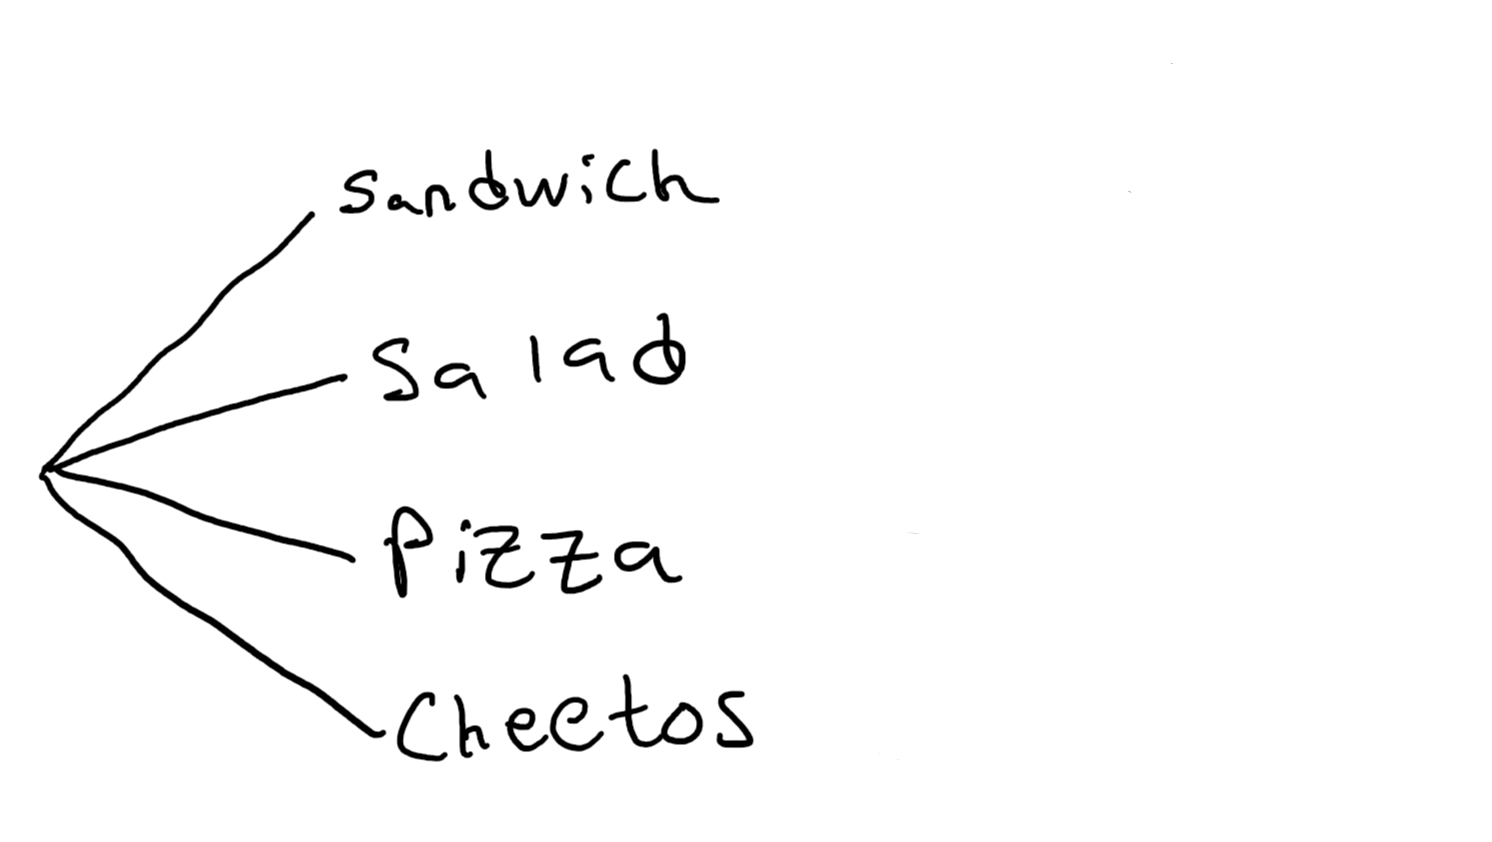 Sandwich
Salad
Pizza
Cheetos